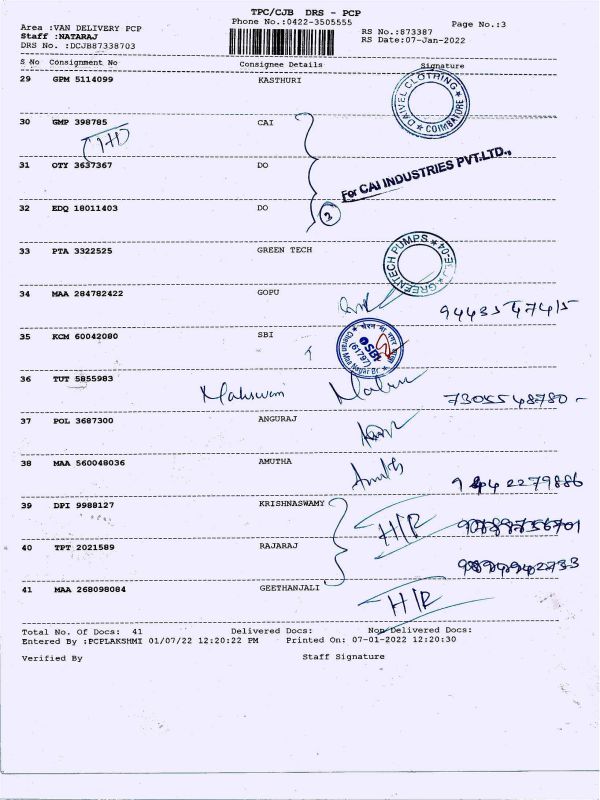 TPC/CJB DRS - PCP
Area :VAN DELIVERY PCP
Phone No.:0422-3505555
Page No.:3
Staff :NATARAJ
RS No.:873387
DRS No. :DCJB87338703
RS Date:07-Jan-2022
S No Consignment No Consignee Details Signature
29 GPM 5114099 KASTHURI
DAIVEL CLOTHING ★ COIMBATORE ★
30 GMP 398785 CAI
31 OTY 3637367 DO
For CAI INDUSTRIES PVT.LTD.,
32 EDQ 18011403 DO
3
33 PTA 3322525 GREEN TECH
GREENTECH PUMPS ★ CBE-04 ★
34 MAA 284782422 GOPU
35 KCM 60042080 SBI
SBI (61787) Cheran Maa Nagar Br.
36 TUT 5855983
37 POL 3687300 ANGURAJ
38 MAA 560048036 AMUTHA
39 DPI 9988127 KRISHNASWAMY
H/R
40 TPT 2021589 RAJARAJ
41 MAA 268098084 GEETHANJALI
H/R
Total No. Of Docs: 41 Delivered Docs: Non Delivered Docs:
Entered By :PCPLAKSHMI 01/07/22 12:20:22 PM Printed On: 07-01-2022 12:20:30
Verified By Staff Signature